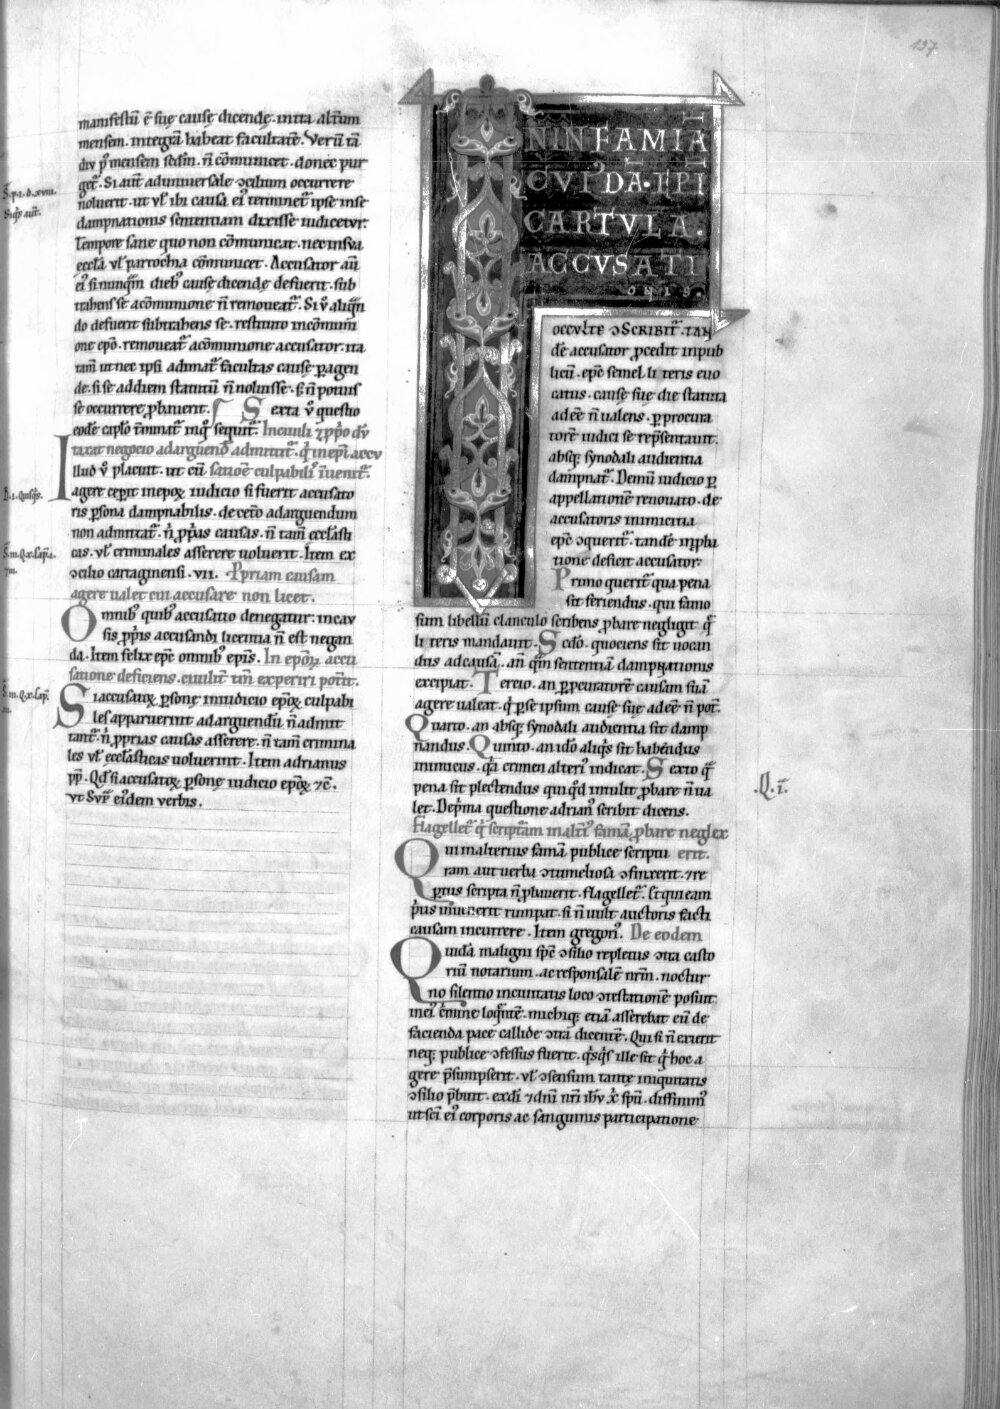 137
manifestū ē suę cause dicendę. infra alt͛um
mensem. integrā habeat facultatē. Verū tā
diu p̄ mensem sedm̄. n̄ cōmunicet. donec pur
get͛. Si aut̄ ad universale ɔcilium occurrere
noluerit. ut vl̄ ibi causa ei᷒ terminet͛ ipse in se
dampnationis sententiam dixisse iudicetur.
Tempore sane quo non cōmunicat. nec in sua
eccl̄a vl̄ parrochia cōmunicet. Accusator aū
ei᷒ si nunquā dieb᷒ cause dicendę defuerit. sub
trahens se a cōmunione n̄ removeat͛. Si v̊ aliqn̄
do defuerit subtrahens se. restituto in cōmuni
one epō. removeat͛ a cōmunione accusator. ita
tam̄ ut nec ipsi adimat͛ facultas cause ꝑagen
de. si se ad diem statutū n̄ noluisse. s; n̄ potuis
se occurrere ꝓbaverit. Sexta v̊ questio
eodē capl̄o t̄minat͛ in q᷒ sequit͛.
agere ceperit in epoꝝ iudicio si fuerit accusato
ris ꝑsona dampnabilis. decreto ad arguendum
non admittat͛. n̄ ꝓp̄as causas. n̄ tam̄ eccl̄asti
cas. vl̄ criminales asserere voluerit. Item ex
ɔcilio cartaginensi .VII. Ppriam causam
agere valet cui accusare non licet.
Omnib᷒ quib᷒ accusatio denegatur: in cau
sis ꝓp̄is accusandi licentia n̄ est negan
da. Item felix epc̄ omnib᷒ epis̄. In epoꝝ accu
satione deficiens. civilit͛ tm̄ experiri potit͛.
Si accusatoꝝ ꝑsone in iudicio epoꝝ culpabi
les apparuerint ad arguendū n̄ admit
tant͛. n̄ ꝓprias causas asserere. n̄ tam̄ crimina
les vl̄ ęccl̄asticas voluerint. Item adrianus
pp̄. Qđ si accusatoꝝ ꝑsone iudicio epoꝝ ⁊c̄.
ut sup̄ eisdem verbis.
IN INFAMIA
CVI᷒DA. EPI
CARTVLA.
ACCUSATI
ONIS.
OCCVLTE ɔSCRIBIT͛. TAN
dē accusator ꝓcedit in pub
licū. epc̄ semel li teris evo
catus. cause suę die statuta
adeē n̄ valens. ꝑ procura
torē iudici se rep̄sentavit.
absq; synodali audientia
dampnat͛. Demū iudicio ꝑ
appellationē renovato. de
accusatoris inimicitia
epc̄ ɔquerit͛. tandē in ꝓba
tione deficit accusator.
Primo querit͛ qua pena
sit feriendus. qui famo
sum libellū clanculo scribens ꝓbare negligit q̄
li teris mandavit. Scd̄o. quociens sit vocan
dus ad causā. an q̄m sententiā dampnationis
excipiat. Tercio. an ꝑ ꝓcuratorē causam suā
agere valeat. q̇ ꝑ se ipsum cause suę adeē n̄ pot͛.
Quarto. an absq; synodali audientia sit damp
nandus. Quinto. an idō aliq̇s sit habendus
inimicus. q̇a crimen alteri᷒ indicat. Sexto q̄
pena sit plectendus qui qđ intulit ꝓbare n̄ va
let. De p̄ma questione adrian᷒ scribit dicens.
Qui in alterius famā publice scriptu erit.
ram aut verba ɔtumeliosa ɔfinxerit. ⁊ re
ptus scripta n̄ ꝓbaverit. flagellet͛. Et qui eam
p̄us invenerit rumpat. si n̄ vult auctoris facti
causam incurrere. Item gregori᷒. De eodem
Quidā maligni spc̄ ɔsilio repletus ɔtra casto
riū notarium. ac responsalē nr̄m. noctur
no silentio in civitatis loco ɔtestationē posuit
in ei᷒ c̄mine loquentē. michiq; etiā asserebat eū de
facienda pace callide ɔtrā dicentē. Qui si n̄ exierit
neq; publice ɔfessus fuerit. q̇sq̇s ille sit q̇ hoc a
gere p̄sumpserit. vl̄ ɔsensum tantę iniquitatis
ɔsilio p̄buit. ex dī ⁊ dn̄i nr̄i ihv xp̄ spū. diffinim᷒
ut sc̄i ei᷒ corporis ac sanguinis participatione
.Q. ī.